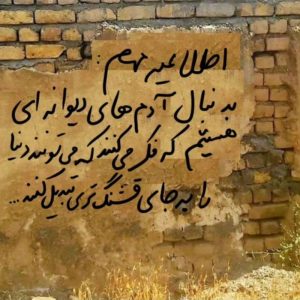 اطلاعیه مهم :
به دنبال آدم های دیوانه ای
هستیم که فکر می کنند که می تونند دنیا
را به جای قشنگ تری تبدیل کنند ...